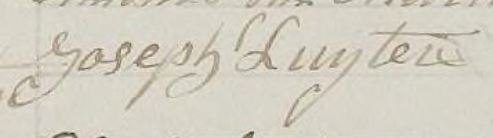 Joseph Luyten